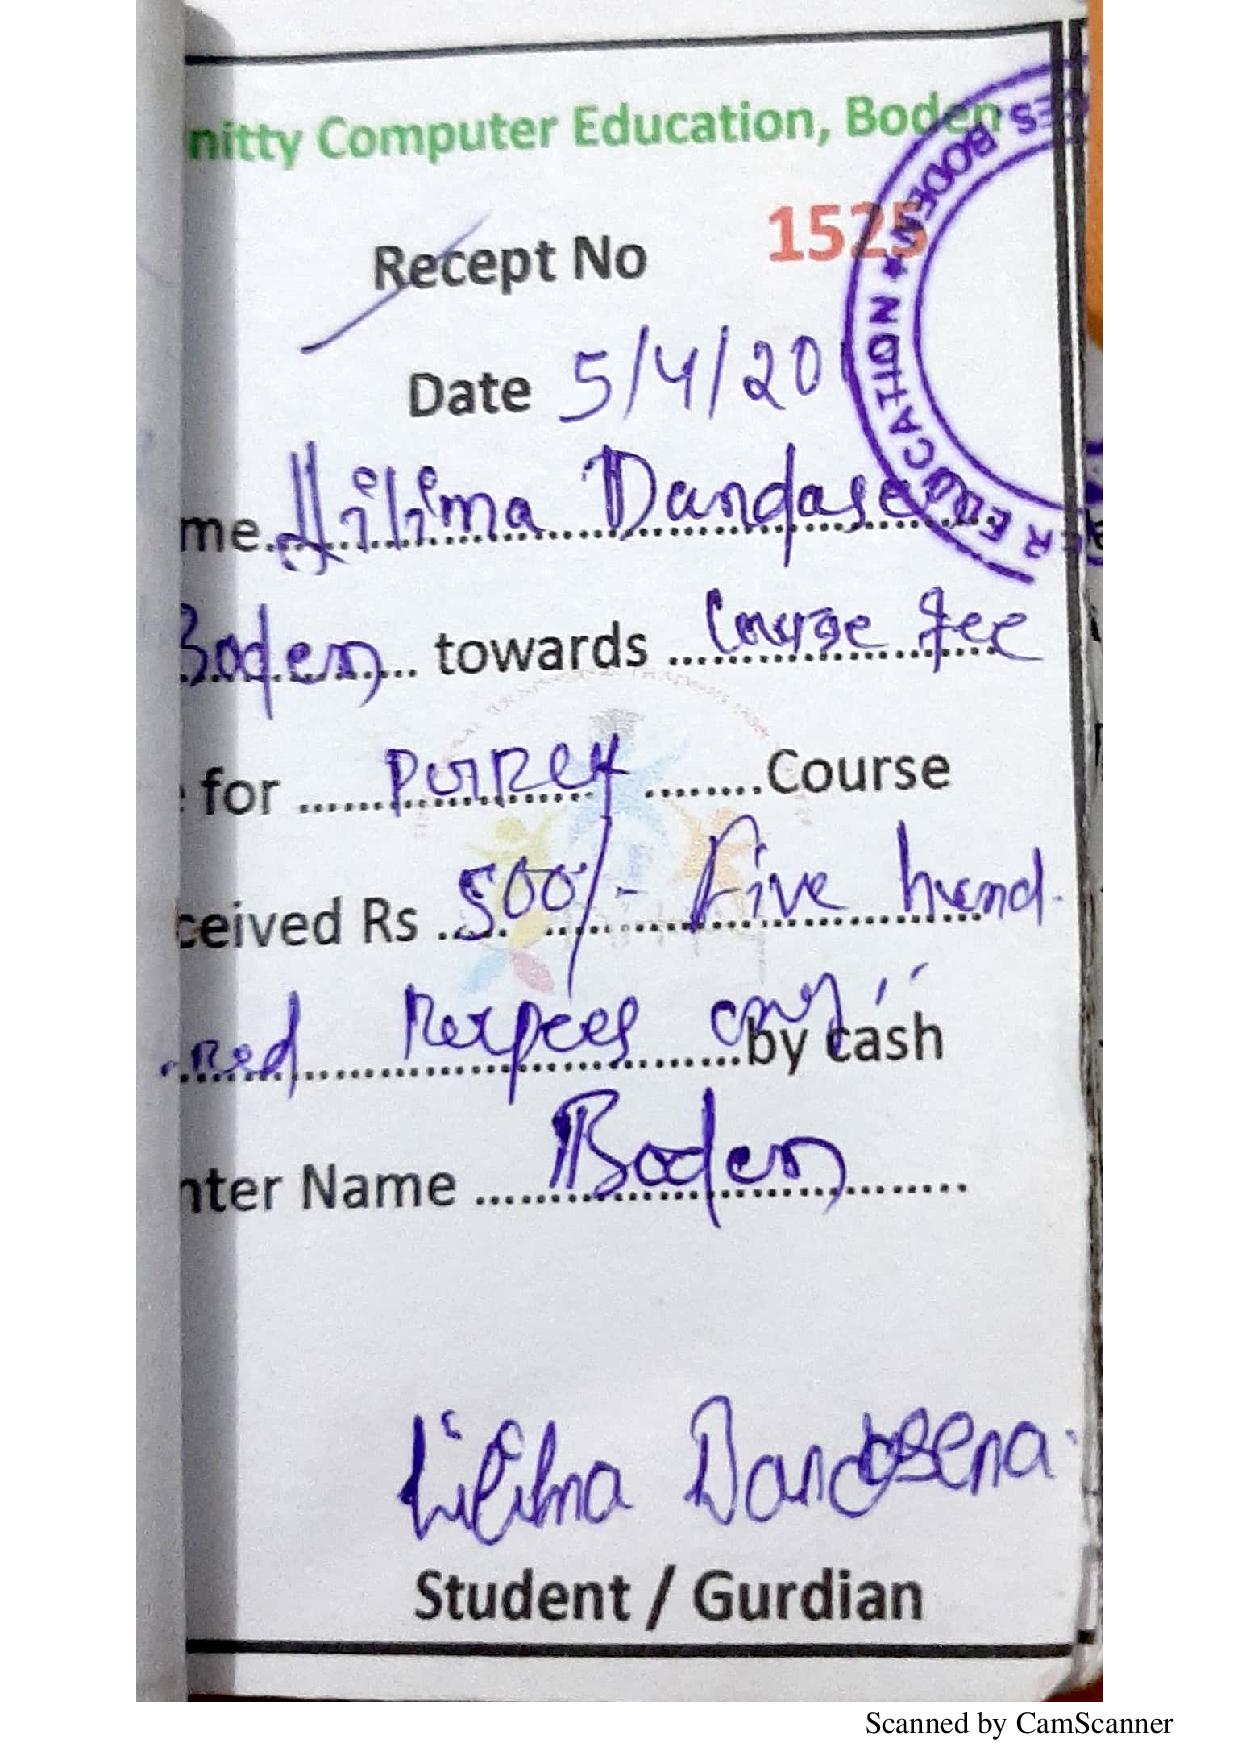 nitty Computer Education, Boden
Recept No 1525
Date 5/4/20
me. Nilima Dandase
Boden towards Course fee
for Course
ceived Rs 500/- Five hund
red Rupees only by cash
nter Name Boden
Nilima Dandasena
Student / Gurdian
CES BODEN ★
ER EDUCATION
Scanned by CamScanner